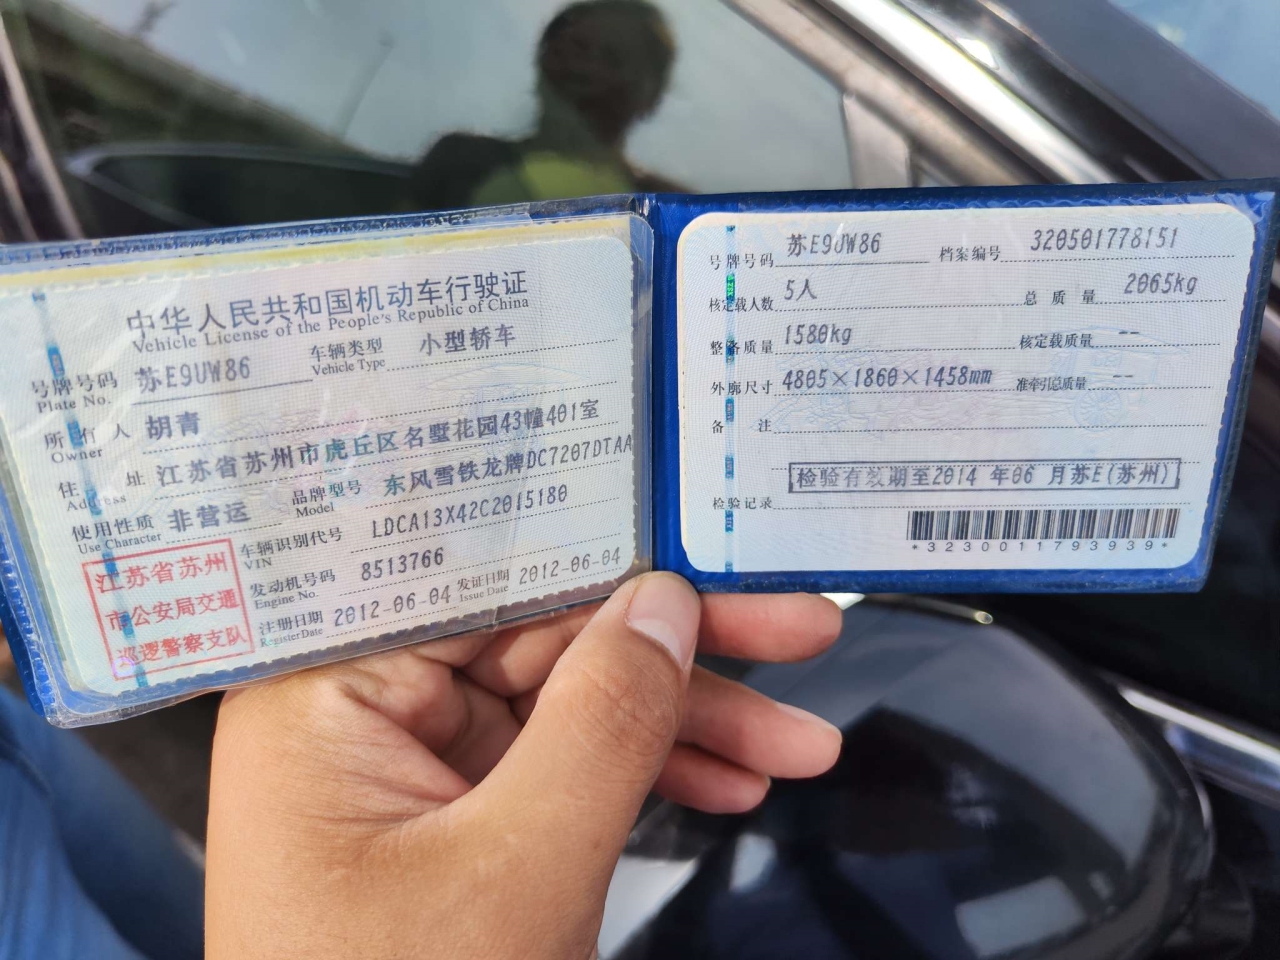 中华人民共和国机动车行驶证
Vehicle License of the People's Republic of China
号牌号码 苏E9UW86 车辆类型 小型轿车
Plate No. Vehicle Type
所有人 胡青
Owner
住址 江苏省苏州市虎丘区名墅花园43幢401室
Address
使用性质 非营运 品牌型号 东风雪铁龙牌DC7207DTAA
Use Character Model
江苏省苏州
市公安局交通
巡逻警察支队
车辆识别代号 LDCA13X42C2015180
VIN
发动机号码 8513766
Engine No.
注册日期 2012-06-04 发证日期 2012-06-04
Register Date Issue Date
号牌号码 苏E9UW86 档案编号 320501778151
核定载人数 5人 总质量 2065kg
整备质量 1580kg 核定载质量 --
外廓尺寸 4805×1860×1458mm 准牵引总质量 --
备注
检验有效期至2014 年06 月苏E(苏州)
检验记录
*3230011793939*